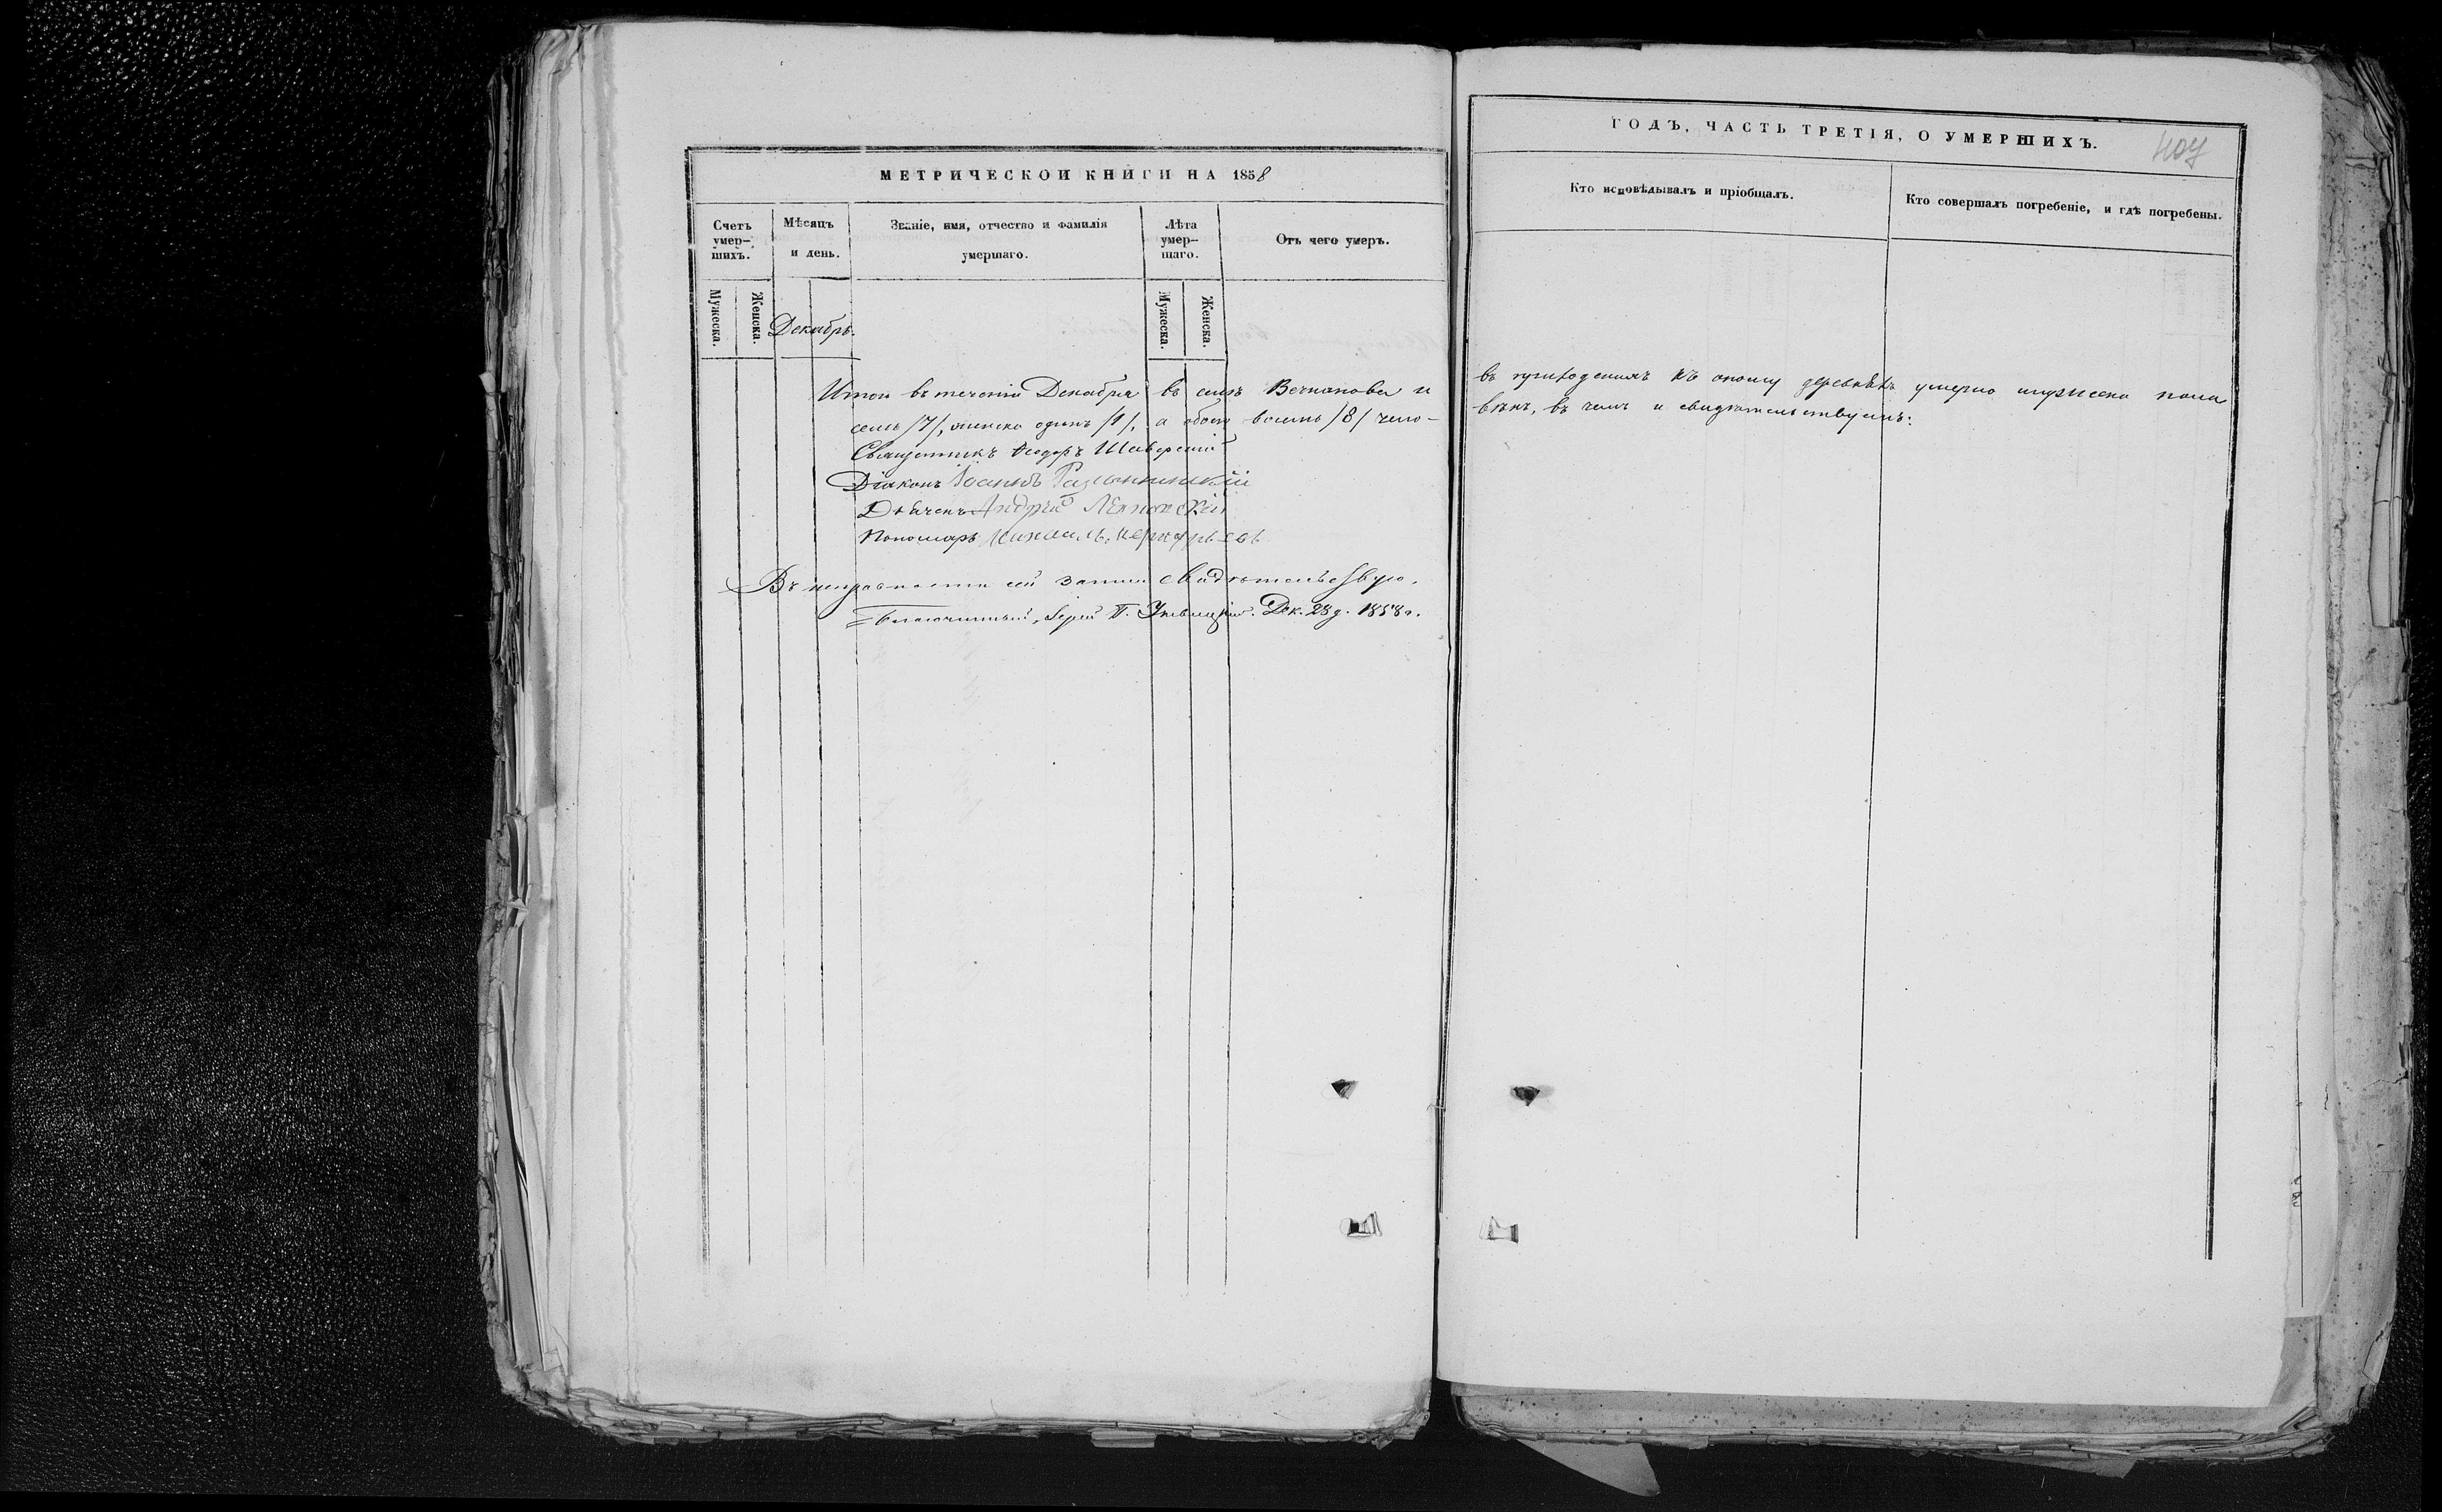 МЕТРИЧЕСКОЙ КНИГИ НА 1858
Счетъ умер-шихъ.
Мѣсяцъ и день.
Званіе, имя, отчество и фамилія умершаго.
Лѣта умер-шаго.
Отъ чего умеръ.
Мужеска.
Женска.
Декабрь.
Мужеска.
Женска.
Итого въ теченіи Декабря въ селѣ и
семь /7/, женска одинъ /1/, а обоего восемь /8/ чело-
Священникъ Ѳеодоръ
Діаконъ Іоаннъ
Дьячекъ Андрей
Пономарь
Въ исправности сей записи свидѣтельствую.
Благочинный, Іерей П. Дек. 28 д. 1858 г.
ГОДЪ, ЧАСТЬ ТРЕТІЯ, О УМЕРШИХЪ.
407
Кто исповѣдывалъ и пріобщалъ.
Кто совершалъ погребеніе, и гдѣ погребены.
въ приходскихъ къ оному деревняхъ умерло мужеска пола
вѣкъ, въ чемъ и свидѣтельствуемъ: